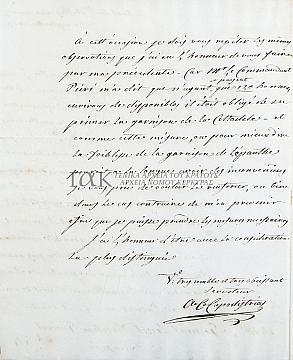 À cette occasion je dois vous répéter les mêmes
observations que j'ai eu l'honneur de vous faire
par ma précédente. Car Mr. le Commandant
Piéri m'a dit que n'ayant que 120 hommes
environ de disponibles il était obligé de
la garnison de la Citadelle. et
comme cette mesure, ou pour mieux dire
la faiblesse de la garnison de
des inconvéniens
de vouloir la renforcer, ou bien
dans le cas contraire de m'en prévenir
afin que je puisse prendre les mesures nécessaires
J'ai l'honneur d'être avec la considération
la plus distinguée
V. très humble et très obéissant
serviteur
Capodistrias
ΓΕΝΙΚΑ ΑΡΧΕΙΑ ΤΟΥ ΚΡΑΤΟΥΣ
ΑΡΧΕΙΑ ΝΟΜΟΥ ΚΕΡΚΥΡΑΣ